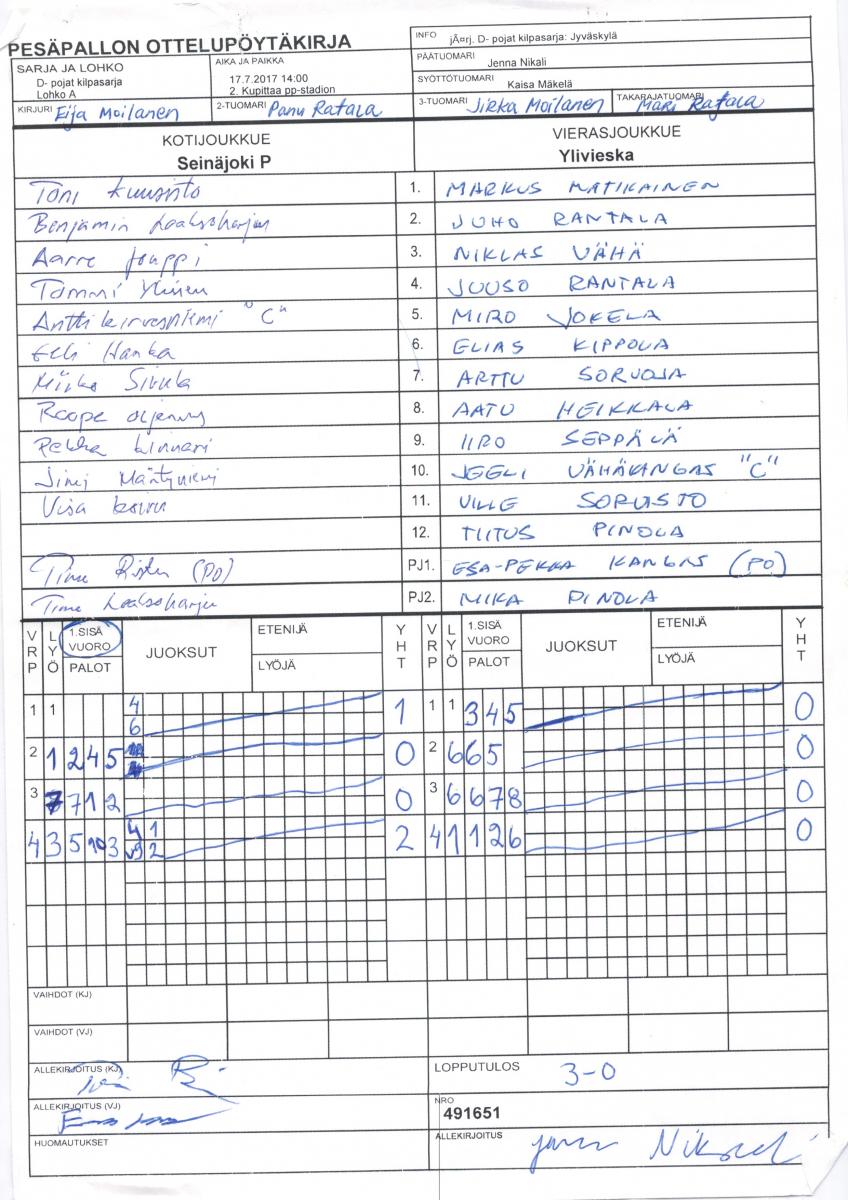 PESÄPALLON OTTELUPÖYTÄKIRJA
INFO jÃ¤rj. D- pojat kilpasarja: Jyväskylä
PÄÄTUOMARI Jenna Nikali
SYÖTTÖTUOMARI Kaisa Mäkelä
SARJA JA LOHKO
D- pojat kilpasarja
Lohko A
AIKA JA PAIKKA
17.7.2017 14:00
2. Kupittaa pp-stadion
KIRJURI Eija Moilanen 2-TUOMARI Panu Ratala 3-TUOMARI Jirka Moilanen TAKARAJATUOMARI Mari Ratala
KOTIJOUKKUE VIERASJOUKKUE
Seinäjoki P Ylivieska
Toni Kuusisto 1. MARKUS MATIKAINEN
Benjamin Laaksoharju 2. JUHO RANTALA
Aarre Jouppi 3. NIKLAS VÄHÄ
Tommi 4. JUUSO RANTALA
Antti Kirvesniemi "C" 5. MIRO JOKELA
Eeli Hanka 6. ELIAS KIPPOLA
Miika Sivula 7. ARTTU SORVOJA
Roope 8. AATU HEIKKALA
Pekka Kinnari 9. IIRO SEPPÄLÄ
Mäntyniemi 10. JEELI VÄHÄKANGAS "C"
Visa Koivu 11. VILLE SORVISTO
12. TIITUS PINOLA
Timo (PO) PJ1. ESA-PEKKA KANGAS (PO)
Timo Laaksoharju PJ2. MIKA PINOLA
VRP LYÖ 1.SISÄ VUORO PALOT JUOKSUT ETENIJÄ LYÖJÄ YHT VRP LYÖ 1.SISÄ VUORO PALOT JUOKSUT ETENIJÄ LYÖJÄ YHT
1 1 4 6 1 1 1 3 4 5 0
2 1 2 4 5 0 2 6 6 5 0
3 7 7 1 2 0 3 6 6 7 8 0
4 3 5 10 3 4 1 2 2 4 1 1 2 6 0
VAIHDOT (KJ)
VAIHDOT (VJ)
ALLEKIRJOITUS (KJ) LOPPUTULOS 3-0
ALLEKIRJOITUS (VJ) NRO
491651
HUOMAUTUKSET ALLEKIRJOITUS